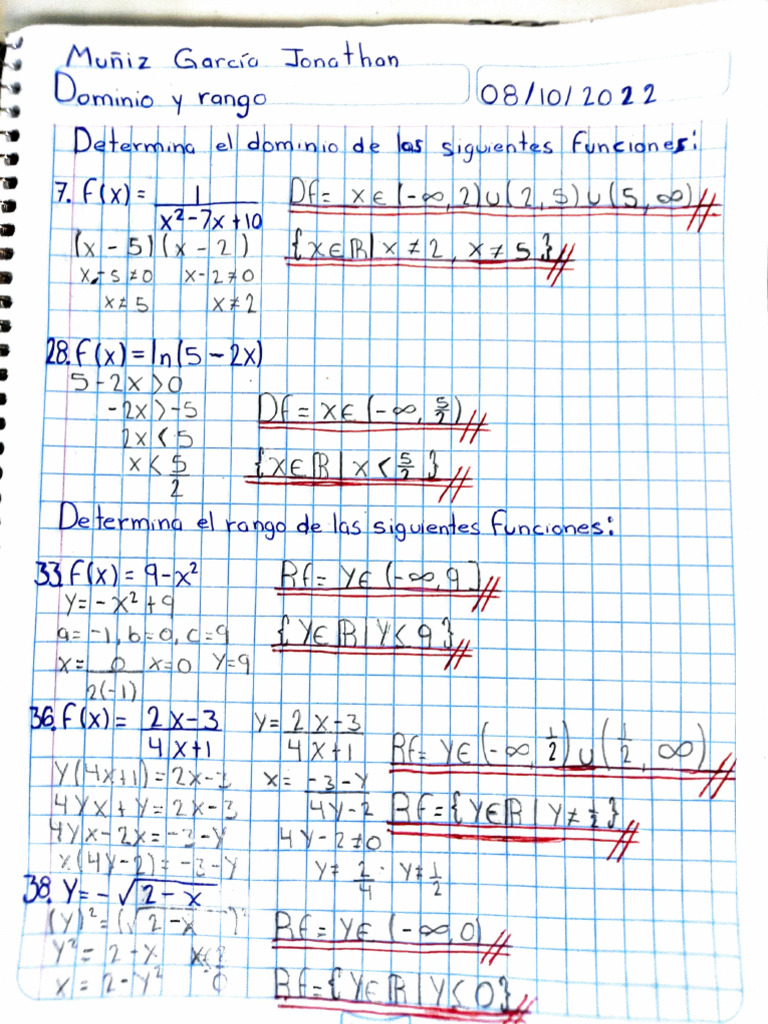 Muñiz García Jonathan
Dominio y rango
08/10/2022
Determina el dominio de las siguientes funciones:
7. f(x) = 1 / x²-7x+10
(x-5)(x-2)
x-5≠0 x-2≠0
x≠5 x≠2
Df= x∈(-∞,2)∪(2,5)∪(5,∞)
{x∈ℝ|x≠2, x≠5}
28. f(x)=ln(5-2x)
5-2x>0
-2x>-5
2x<5
x<5/2
Df= x∈(-∞, 5/2)
{x∈ℝ|x<5/2}
Determina el rango de las siguientes funciones:
33. f(x)=9-x²
y=-x²+9
a=-1, b=0, c=9
x= 0/2(-1) x=0 y=9
Rf= y∈(-∞,9]
{y∈ℝ|y<9}
36. f(x)= 2x-3 / 4x+1
y(4x+1)=2x-3
4yx+y=2x-3
4yx-2x=-3-y
x(4y-2)=-3-y
y= 2x-3 / 4x+1
x= -3-y / 4y-2
4y-2≠0
y≠ 2/4 · y≠ 1/2
Rf= y∈(-∞, 1/2)∪(1/2, ∞)
Rf={y∈ℝ|y≠1/2}
38. y=-√2-x
(y)²=(√2-x)²
y²=2-x
x=2-y²
Rf= y∈(-∞,0)
Rf={y∈ℝ|y<0}